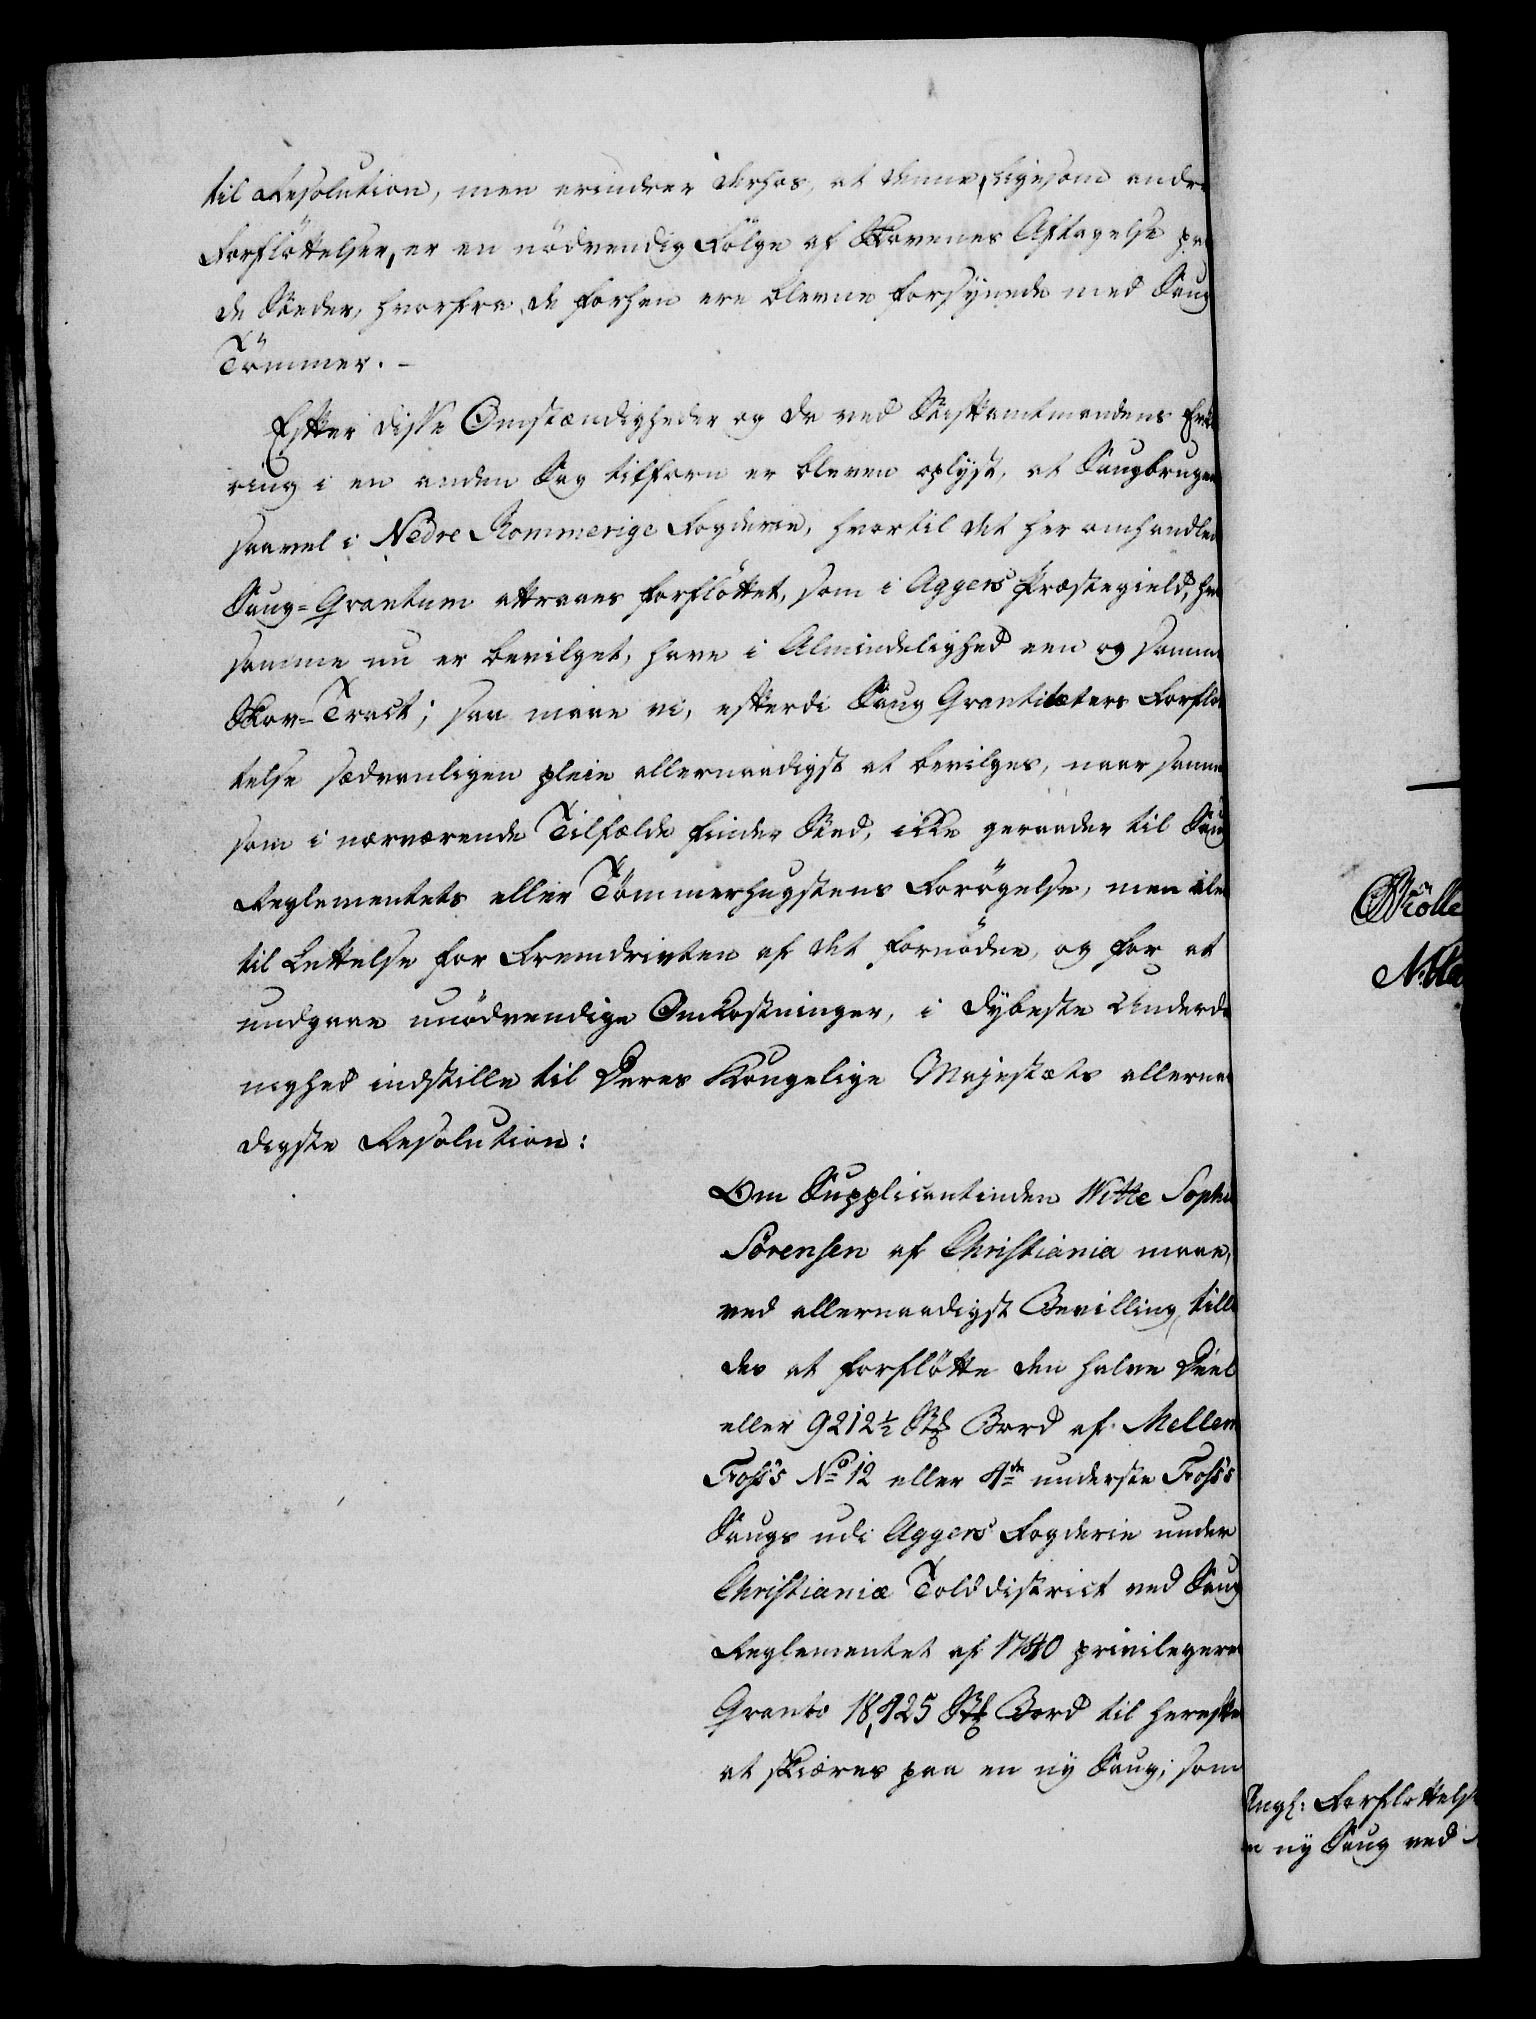 til Resolution, men erindrer derhos, at denne, ligesom andre
Forfløttelser, er en nödvendig Fölge af Skovenes Aftagelse paa
de Steder, hvorfra de forhen ere blevne forsynede med Saug
Tömmer. –
Efter disse Omstændigheder og da ved Stiftamtmandens Erklæ
ring i en anden Sag tilforn er bleven oplyst, at Saugbrugene
saavel i Nedre Rommerige Fogderie, hvortil det her omhandlede
Saug-Qvantum attraaes forflöttet, som i Aggers Præstegield, hvor
samme nu er bevilget, have i Almindelighed een og samme
Skov-Tract; saa maae vi, efterdi Saug Qvantiteters Forflöt
telse sædvanligen pleie allernaadigst at bevilges, naar samme
som i nærværende Tilfælde finder Sted, ikke geraader til Saug
Reglementets eller Tömmerhugstens Forögelse, men alene
til Lettelse for Fremdrivten af det fornödne, og for at
undgaae unödvendige Omkostninger, i dybeste Underda
nighed indstille til Deres Kongelige Majestæts allernaa
digste Resolution:
Om Supplicantinden Witte Sophie
Sörensen af Christiania maae,
ved allernaadigst Bevilling, tilla
des at forflötte den halve Deel
eller 9212½ Stk Bord af Mellem
Foss's No 12 eller 4de underste Foss's
Saugs udi Aggers Fogderie under
Christianiæ Tolddistrict ved Saug
Reglementet af 1740 privilegerede
Qvanto 18,425 Stk Bord til herefter
at skiæres paa en ny Saug, som
Angl: Forflottelse
n ny Saug ved